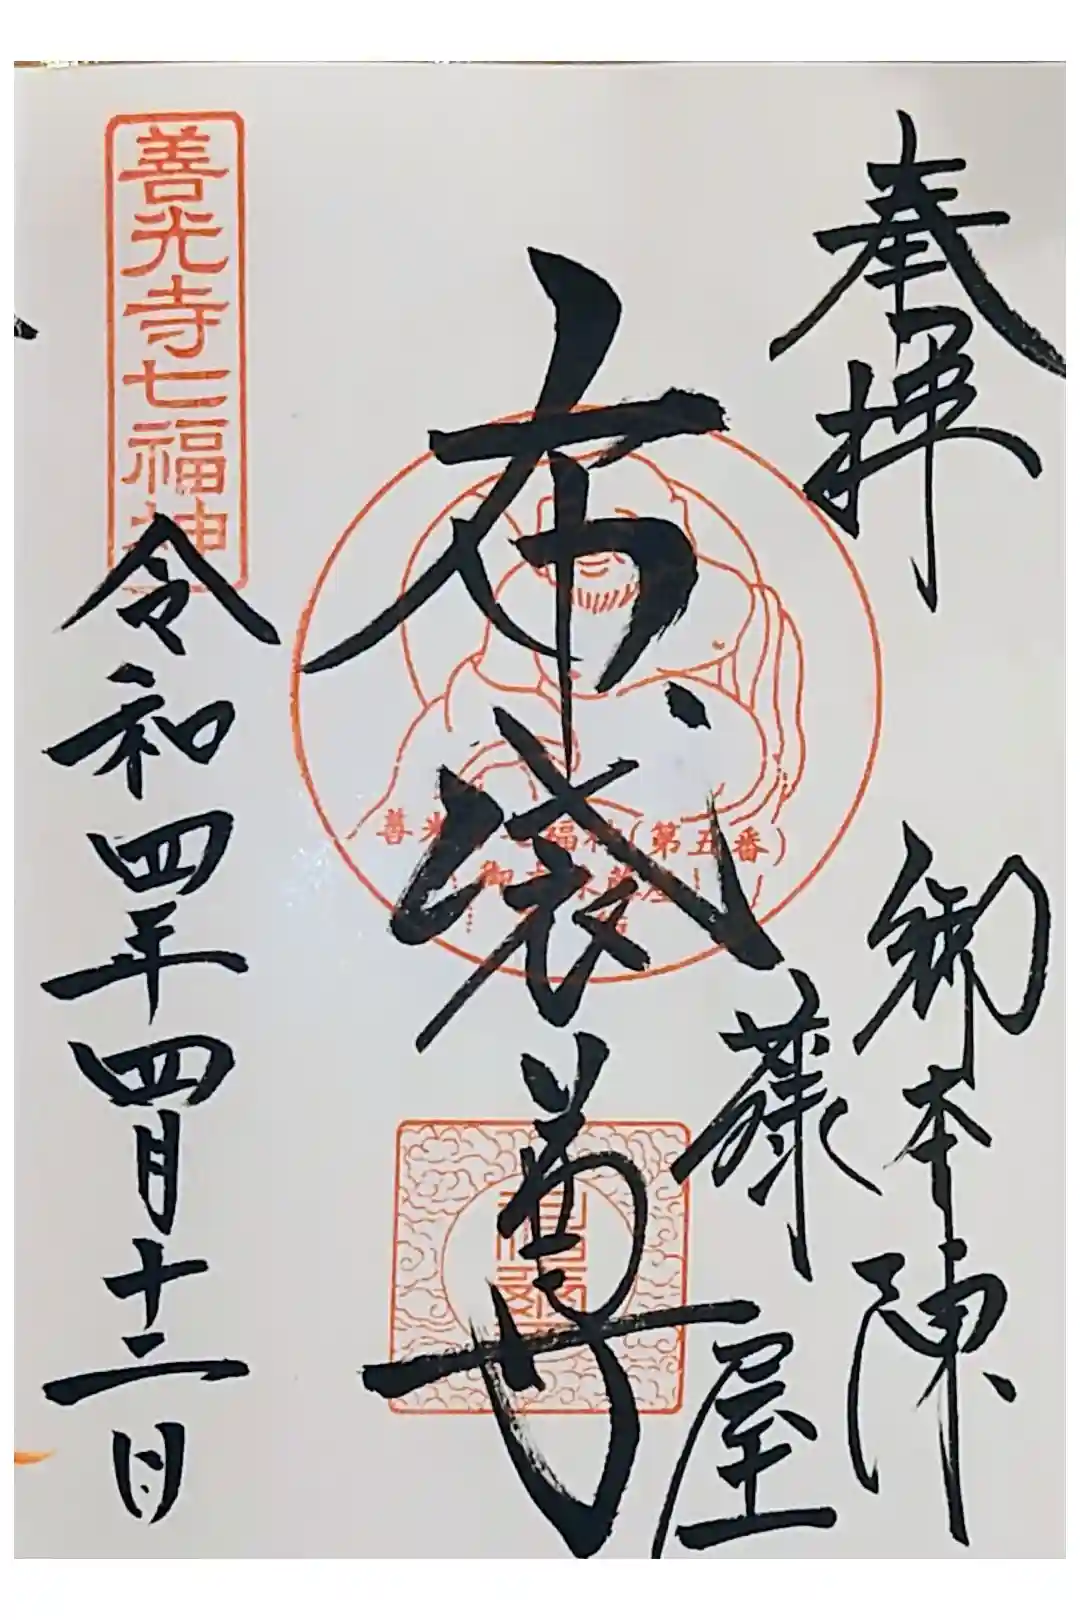 奉拝
御本陳
藤屋
布袋尊
善光寺七福神(第五番)
御本陳藤屋
善光寺七福神
令和四年四月十二日